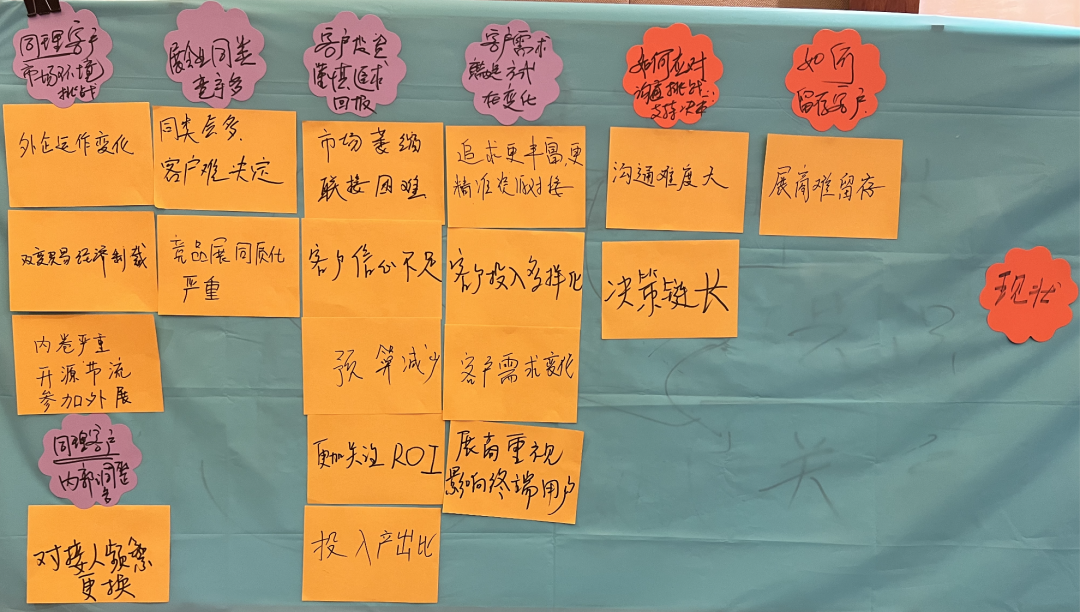 同理客户
市场环境
挑战
外企运作变化
双变贸易经济制裁
内卷严重
开源节流
参加外展
同理客户
内部调整
多
对接人频繁
更换
展会业同类
竞争多
同类会多、
客户难决定
竞品展同质化
严重
客户投资
谨慎追求
回报
市场萎缩
联接困难
客户信心不足
预算减少
更加关注ROI
投入产出比
客户需求
满足方式
在变化
追求更丰富,更
精准资源对接
客户投入多样化
客户需求变化
展商重视
影响终端用户
如何应对
沟通挑战:
支持决策
沟通难度大
决策链长
如何
留存客户
展商难留存
现状